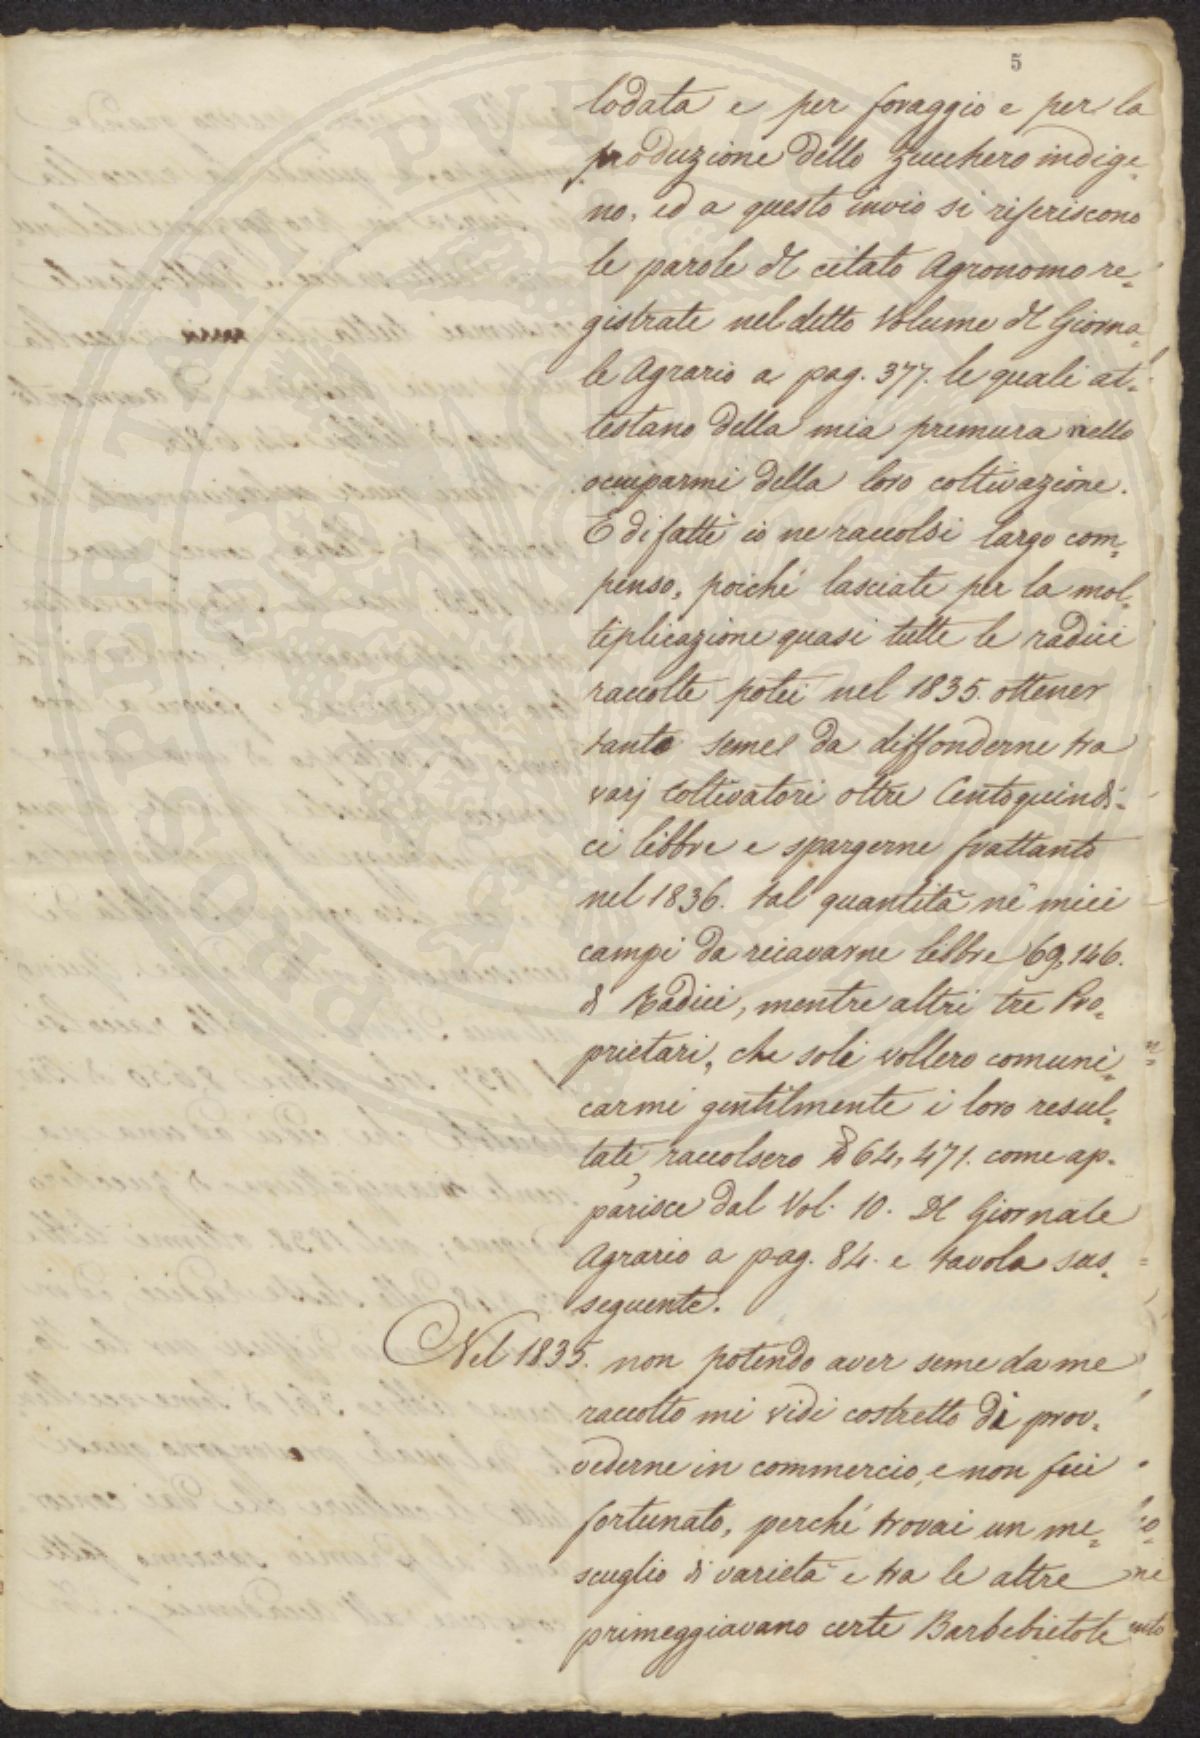 5
lodata e per foraggio e per la
produzione dello zucchero indige-
no, ed a questo invio si riferiscono
le parole del citato Agronomo re-
gistrate nel detto Volume del Giorna-
le Agrario a pag. 377. le quali at-
testano della mia premura nello
occuparmi della loro coltivazione.
E di fatti io ne raccolsi largo com-
penso, poiché lasciate per la mol-
tiplicazione quasi tutte le radici
raccolte potei nel 1835. ottener
tanto seme da diffonderne tra
varj coltivatori oltre Centoquindi-
ci libbre e spargerne frattanto
nel 1836. tal quantità ne' miei
campi da ricavarne libbre 69,146.
di Radici, mentre altri tre Pro-
prietari, che soli vollero comuni-
carmi gentilmente i loro resul-
tati, raccolsero 64,471. come ap-
parisce dal Vol. 10. Del Giornale
Agrario a pag. 84. e tavola sus-
seguente.
Nel 1835. non potendo aver seme da me
raccolto mi vidi costretto di prov-
vederne in commercio, e non fui
fortunato, perché trovai un me-
scuglio di varietà e tra le altre
primeggiavano certe Barbebietole